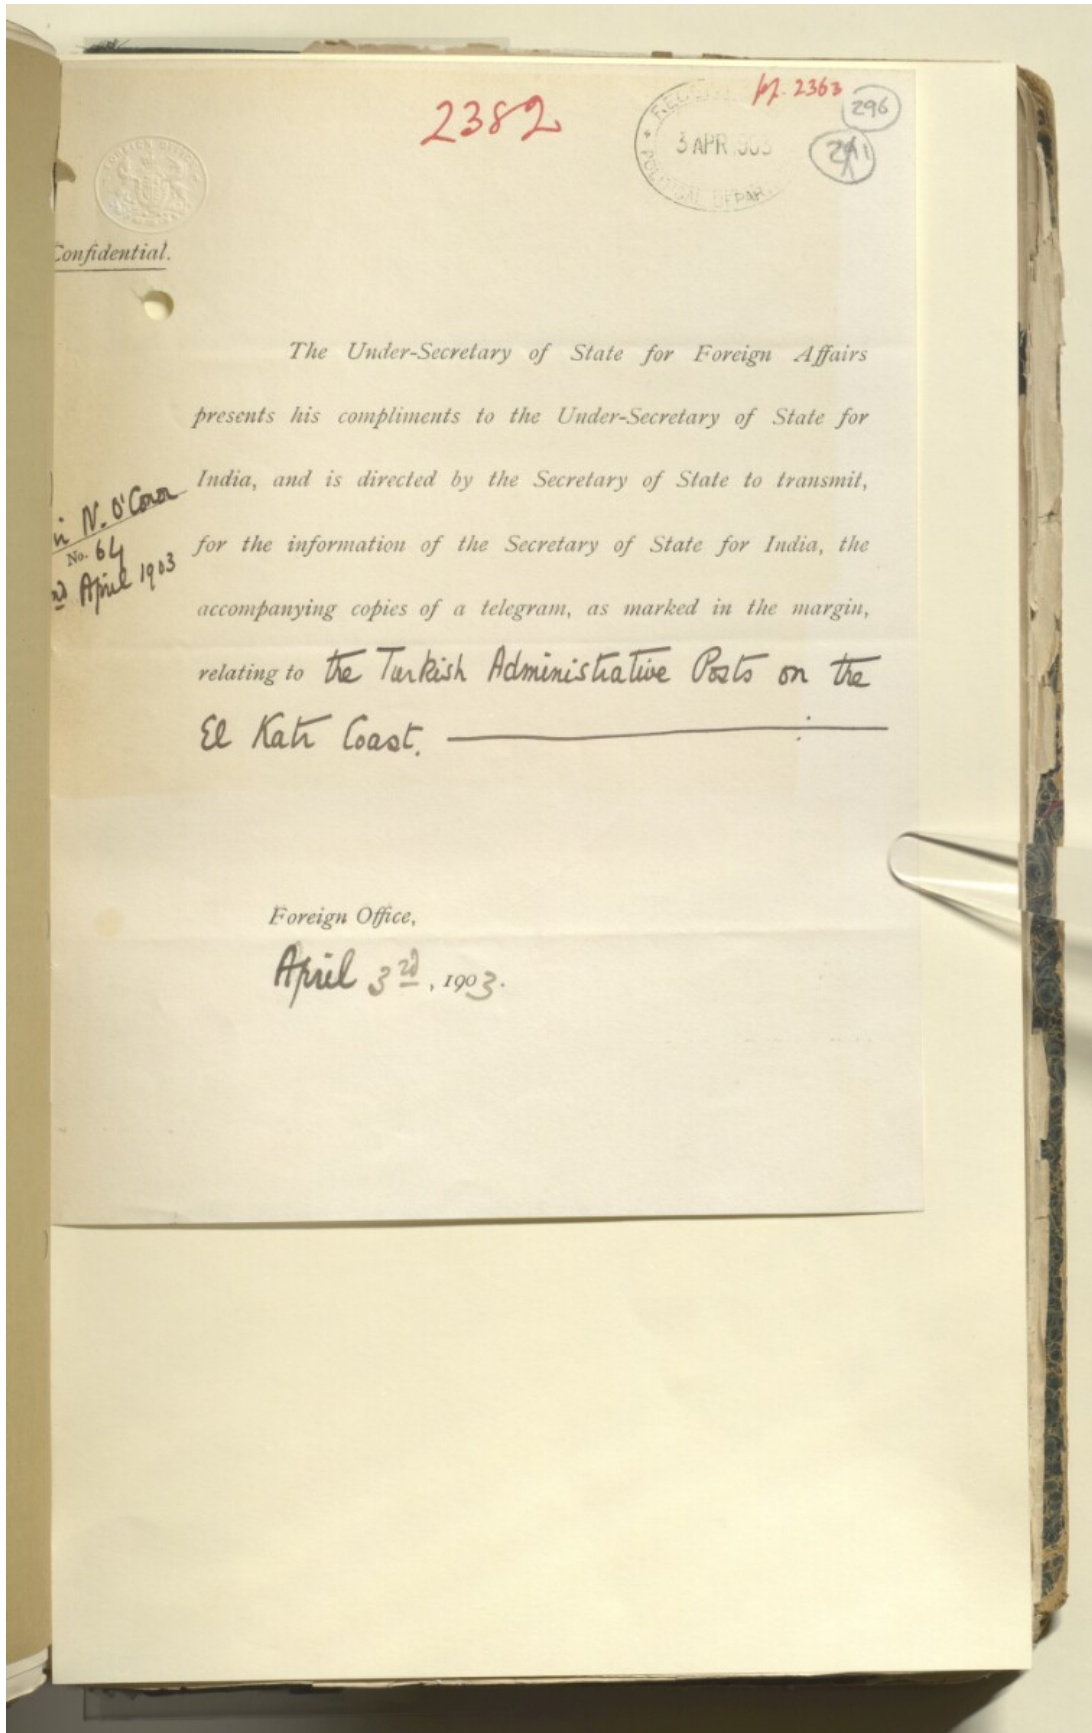 2382
pp. 2363
296
3 APR 1903
POLITICAL DEPAR
FOREIGN OFFICE
Confidential.
The Under-Secretary of State for Foreign Affairs
presents his compliments to the Under-Secretary of State for
India, and is directed by the Secretary of State to transmit,
for the information of the Secretary of State for India, the
accompanying copies of a telegram, as marked in the margin,
relating to the Turkish Administrative Posts on the
El Katr Coast.
N. O'Conor
No. 64
April 1903
Foreign Office,
April 3rd, 1903.